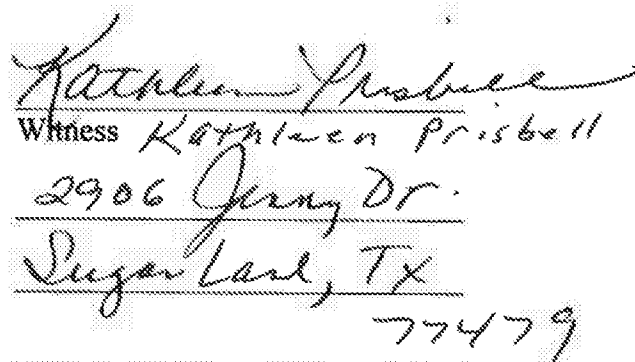 Kathleen Prisbell
Witness Kathleen Prisbell
2906 Jenny Dr.
Sugar Land, Tx
77479